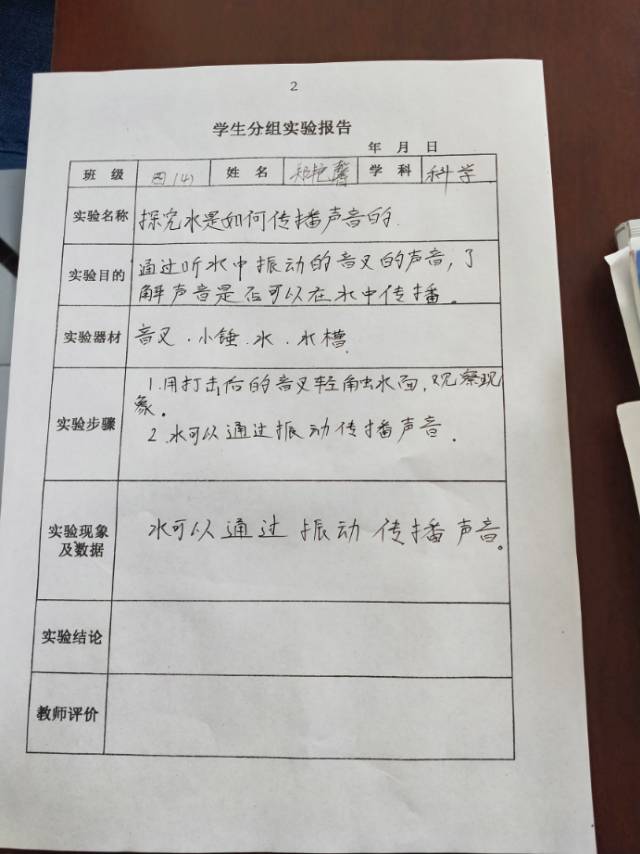 2
学生分组实验报告
年 月 日
班 级 四(4) 姓 名 学 科 科学
实验名称 探究水是如何传播声音的.
实验目的 通过听水中振动的音叉的声音,了
解声音是否可以在水中传播。
实验器材 音叉.小锤.水.水槽.
实验步骤 1.用打击后的音叉轻触水面,观察现
象。
2.水可以通过振动传播声音.
实验现象
及数据
水可以通过振动传播声音。
实验结论
教师评价